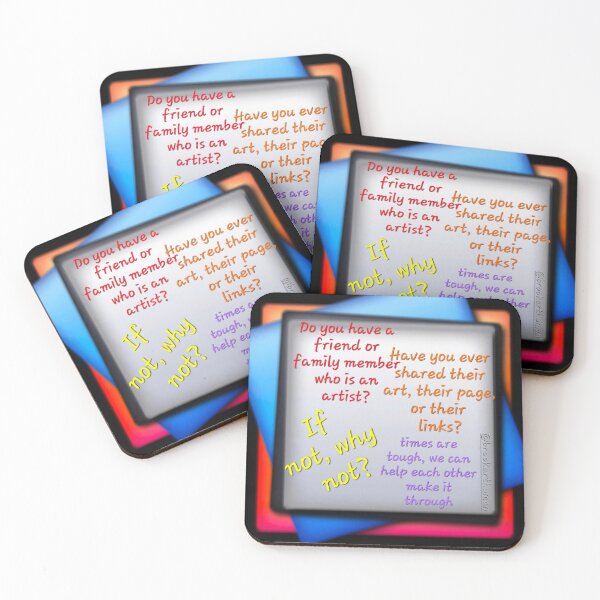 Do you have a
friend or
family member
who is an
artist?
Have you ever
shared their
art, their page,
or their
links?
If
not, why
not?
times are
tough, we can
help each other
make it
through
Do you have a
friend or
family member
who is an
artist?
Have you ever
shared their
art, their page,
or their
links?
If
not, why
not?
times are
tough, we can
help each other
Do you have a
friend or
family member
who is an
artist?
Have you ever
shared their
art, their page,
or their
links?
If
not, why
not?
times are
tough, we
help each
Do you have a
friend or
family member
who is an
artist?
Have you ever
shared their
art, their pag
or their
links?
If
times are